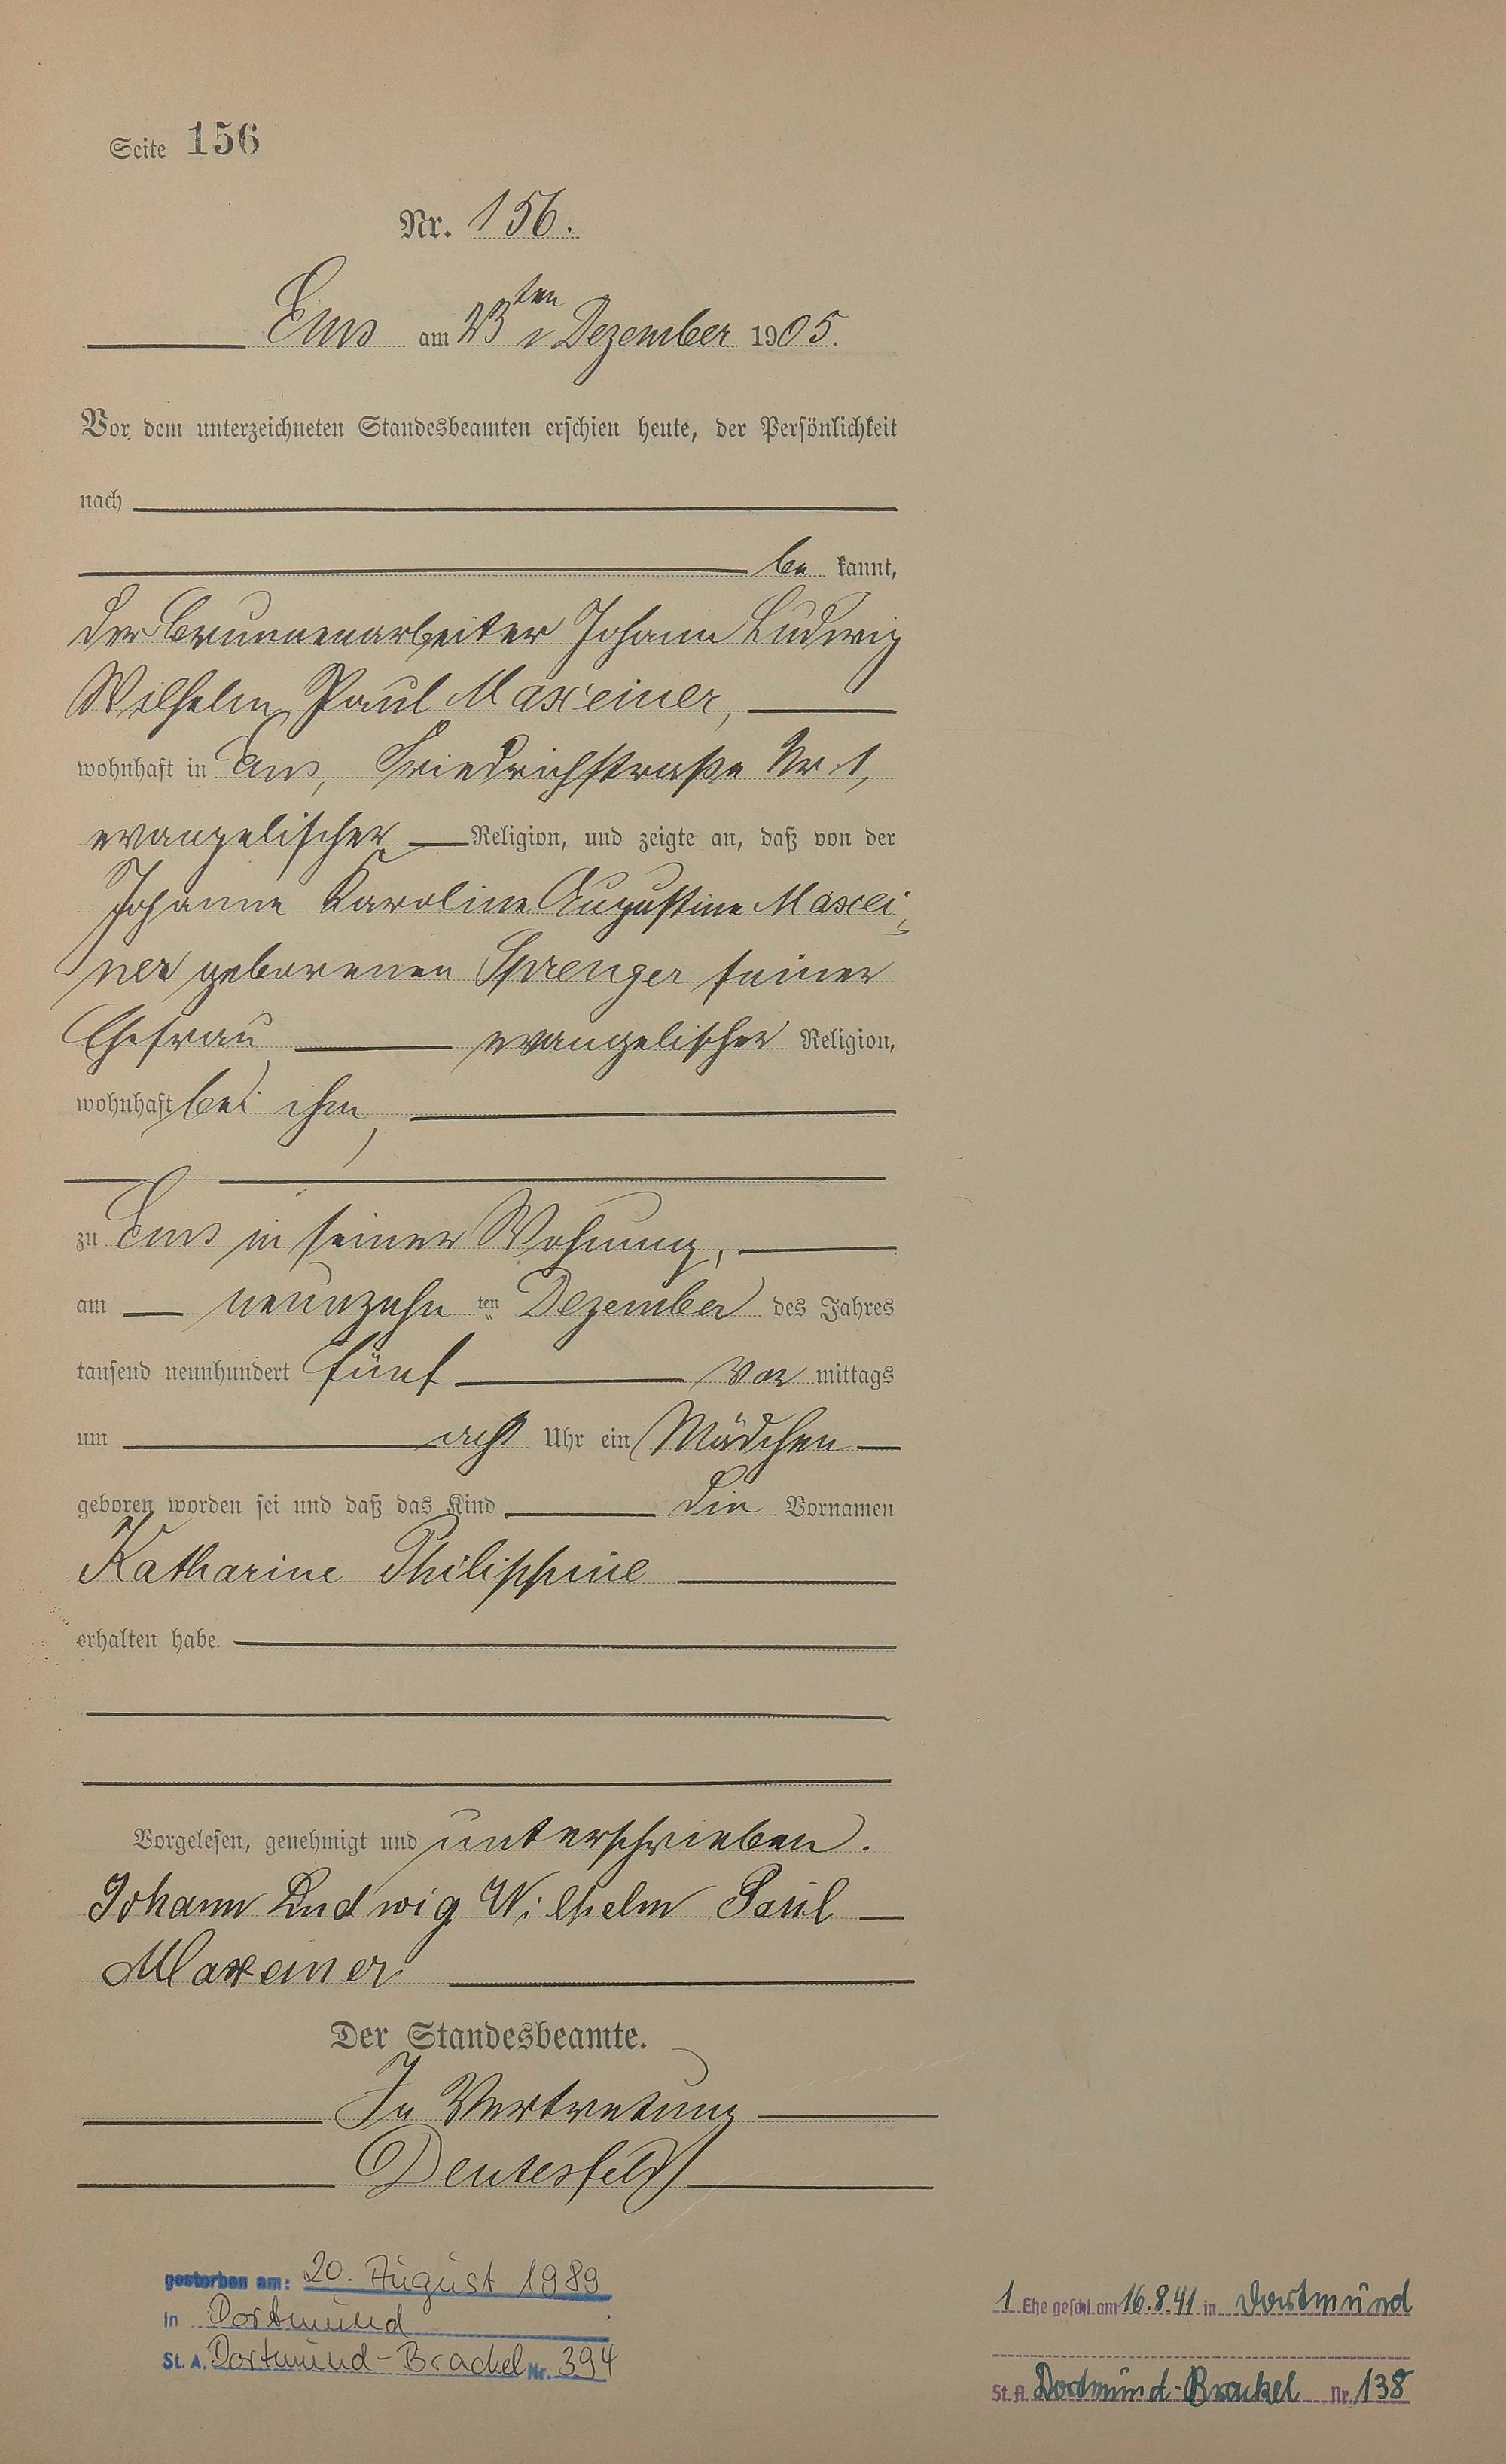 Seite 156
Nr. 156.
Ems am 23ten Dezember 1905.
Vor dem unterzeichneten Standesbeamten erschien heute, der Persönlichkeit
nach
be kannt,
der Brunnenarbeiter Johann Ludwig
Wilhelm Paul Maxeiner,
wohnhaft in Ems, Friedrichstraße Nr 1,
evangelischer Religion, und zeigte an, daß von der
Johanne Karoline Augustine Maxei-
ner geborenen Sprenger seiner
Ehefrau evangelischer Religion,
wohnhaft bei ihm,
zu Ems in seiner Wohnung,
am neunzehn ten Dezember des Jahres
tausend neunhundert fünf vor mittags
um acht Uhr ein Mädchen
geboren worden sei und daß das Kind die Vornamen
Katharine Philippine
erhalten habe.
Vorgelesen, genehmigt und unterschrieben.
Johann Ludwig Wilhelm Paul
Maxeiner
Der Standesbeamte.
In Vertretung
Deutesfeld
gestorben am: 20. August 1989
in Dortmund
St. A. Dortmund-Brackel Nr. 394
1 Ehe geschl. am 16.8.41 in Dortmund
St. A. Dortmund-Brackel Nr. 138